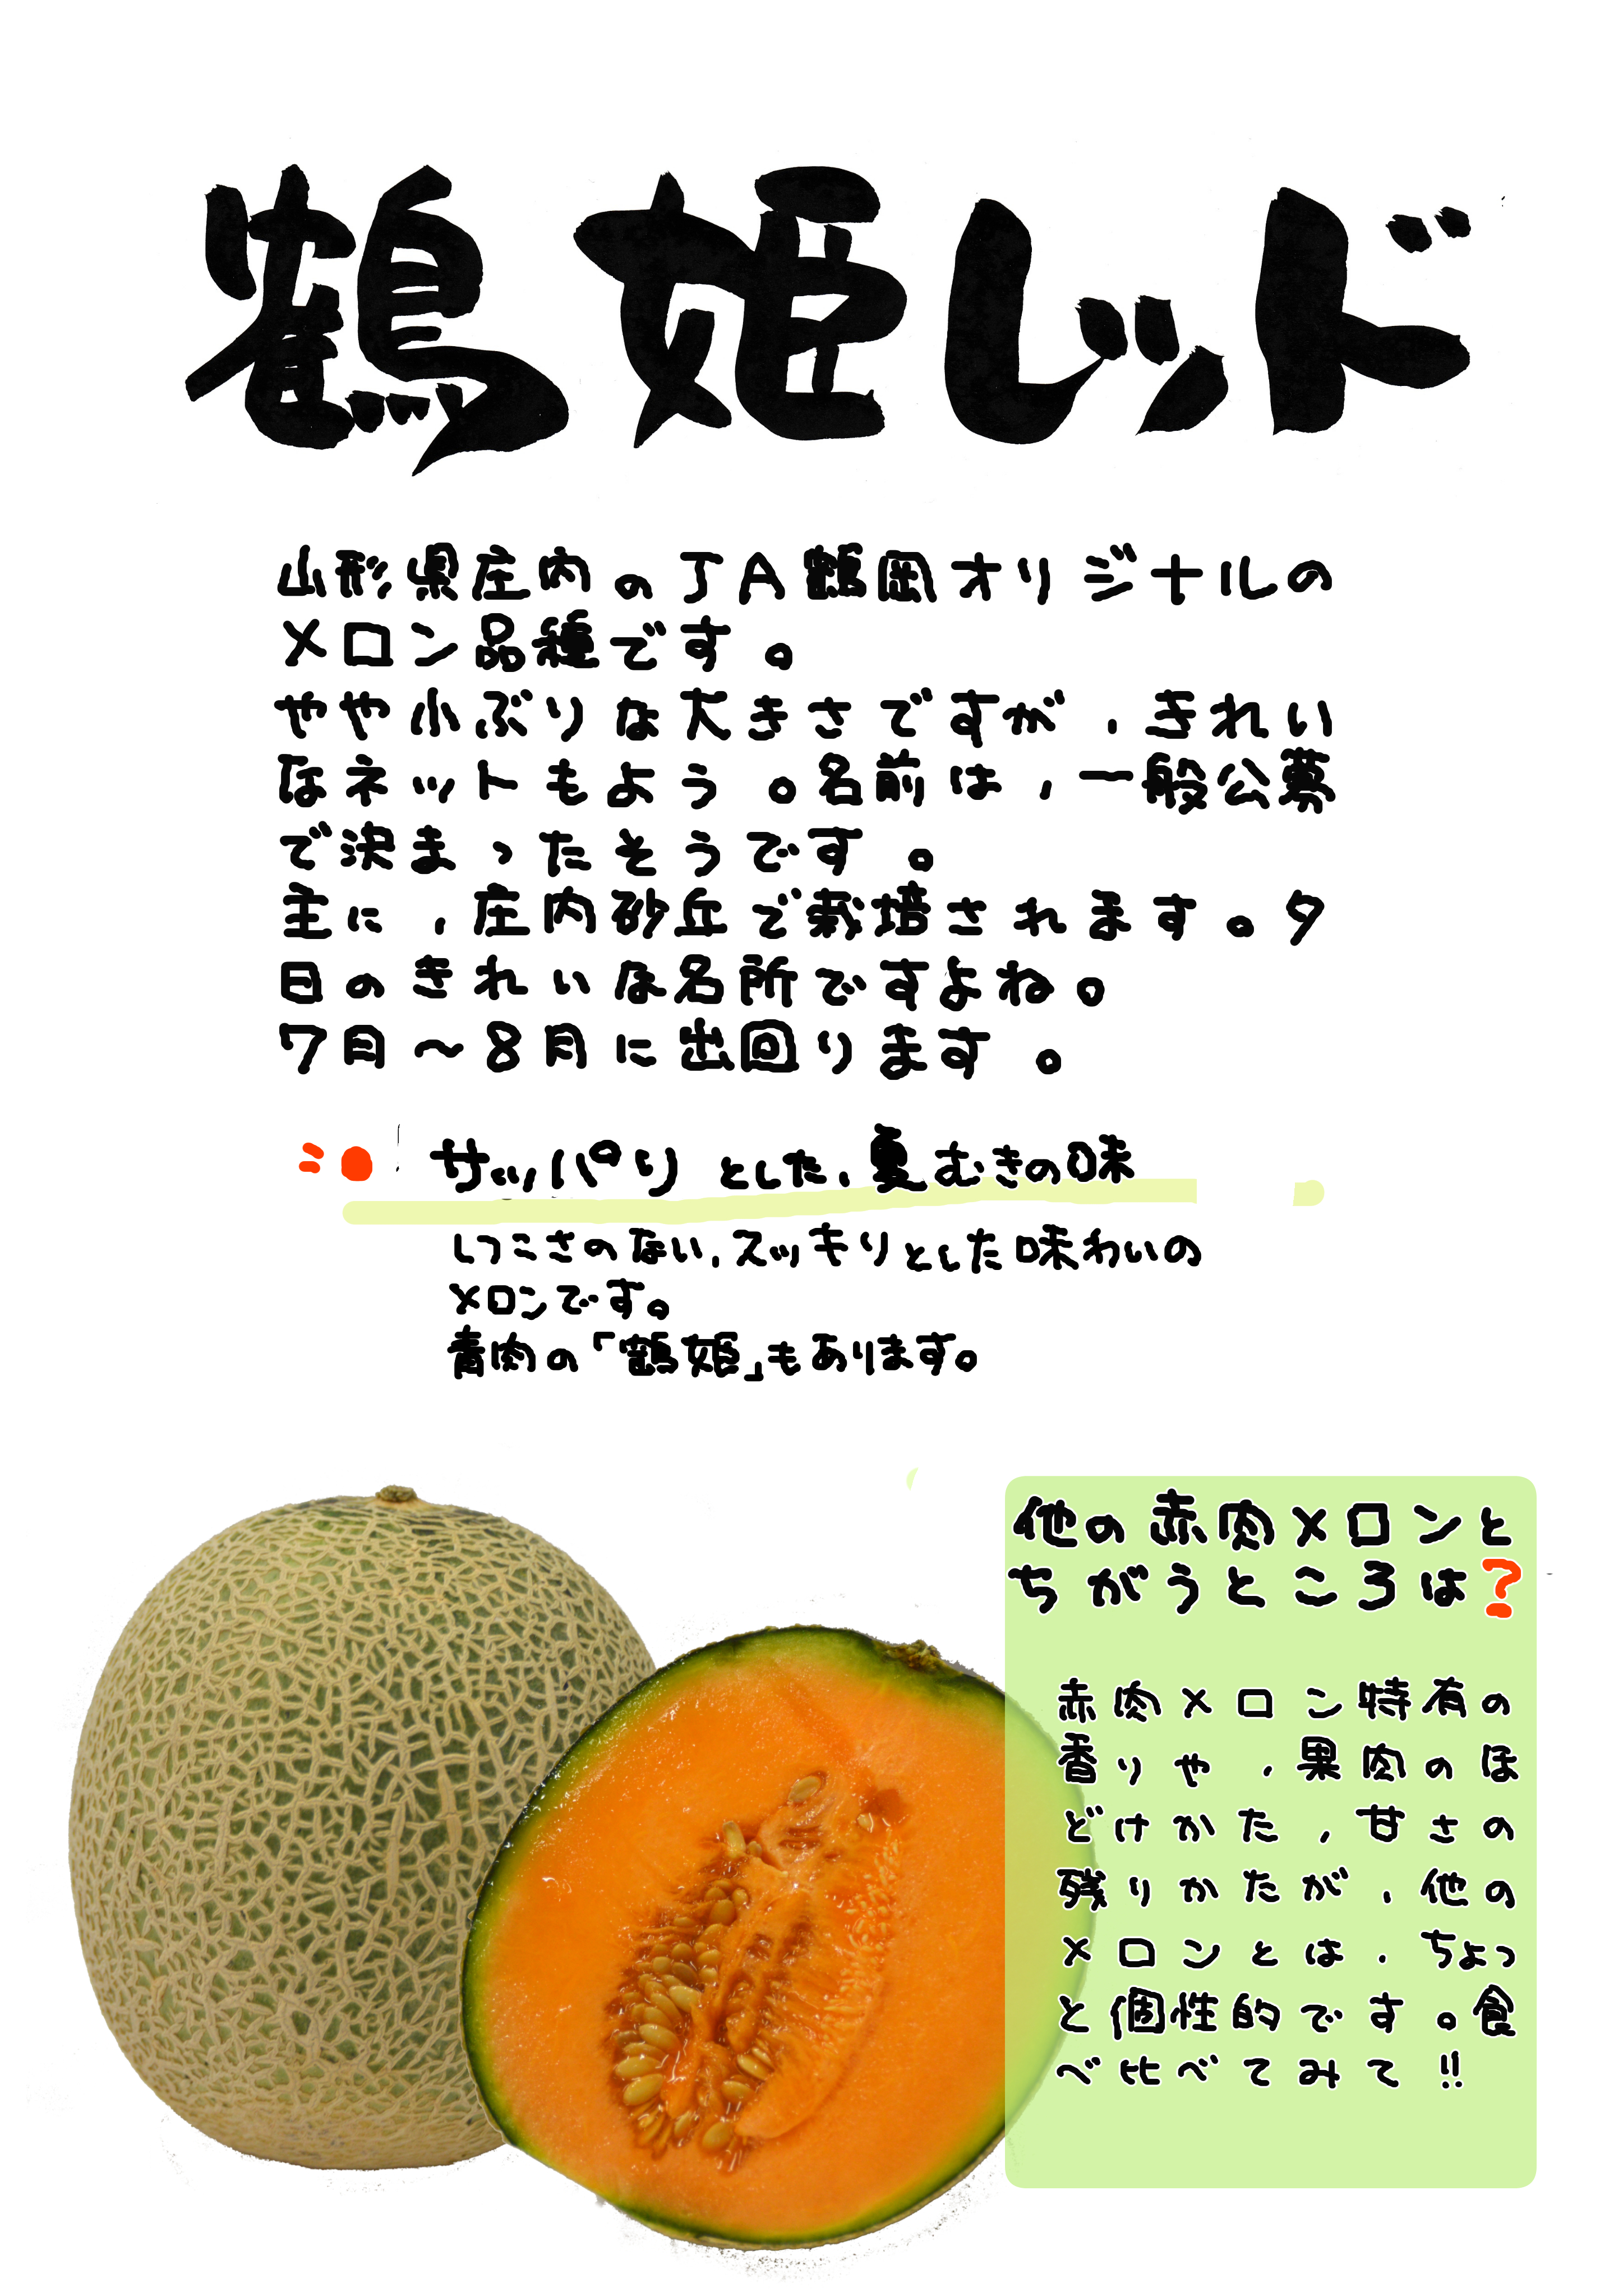 鶴姫レッド
山形県庄内のJA鶴岡オリジナルの
メロン品種です。
やや小ぶりな大きさですが、きれい
なネットもよう。名前は、一般公募
で決まったそうです。
主に、庄内砂丘で栽培されます。夕
日のきれいな名所ですよね。
7月～8月に出回ります。
サッパリとした、夏むきの味
しつこさのない、スッキリとした味わいの
メロンです。
青肉の「鶴姫」もあります。
他の赤肉メロンと
ちがうところは?
赤肉メロン特有の
香りや、果肉のほ
どけかた、甘さの
残りかたが、他の
メロンとは、ちょっ
と個性的です。食
べ比べてみて!!